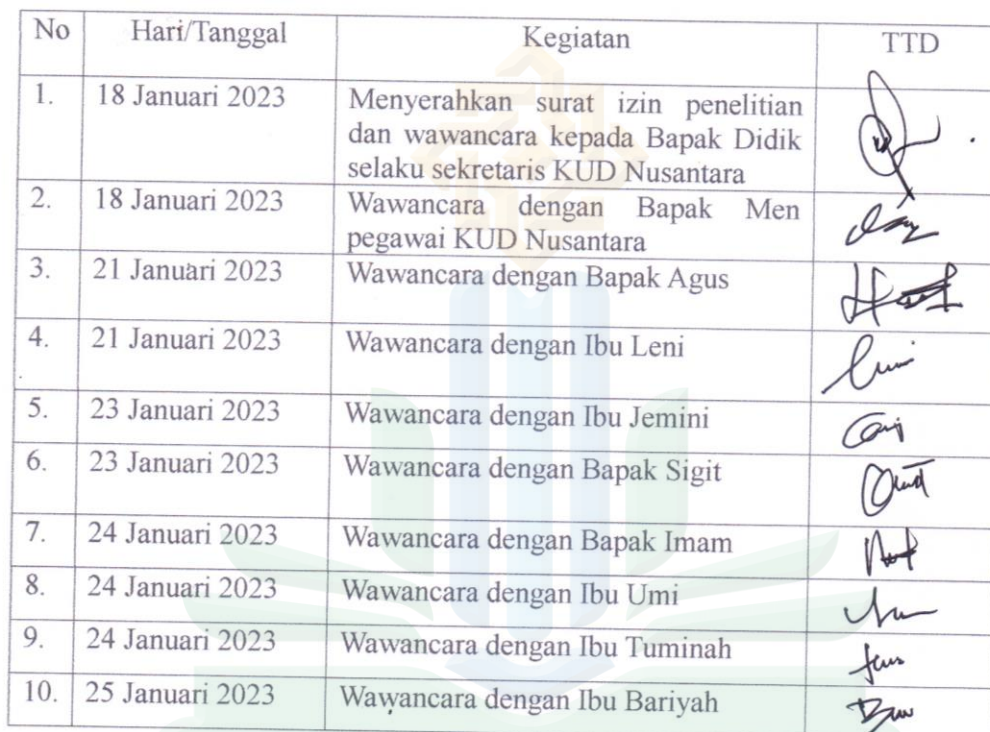 No Hari/Tanggal Kegiatan TTD
1. 18 Januari 2023 Menyerahkan surat izin penelitian
dan wawancara kepada Bapak Didik
selaku sekretaris KUD Nusantara
2. 18 Januari 2023 Wawancara dengan Bapak Men
pegawai KUD Nusantara
3. 21 Januari 2023 Wawancara dengan Bapak Agus
4. 21 Januari 2023 Wawancara dengan Ibu Leni
5. 23 Januari 2023 Wawancara dengan Ibu Jemini
6. 23 Januari 2023 Wawancara dengan Bapak Sigit
7. 24 Januari 2023 Wawancara dengan Bapak Imam
8. 24 Januari 2023 Wawancara dengan Ibu Umi
9. 24 Januari 2023 Wawancara dengan Ibu Tuminah
10. 25 Januari 2023 Wawancara dengan Ibu Bariyah